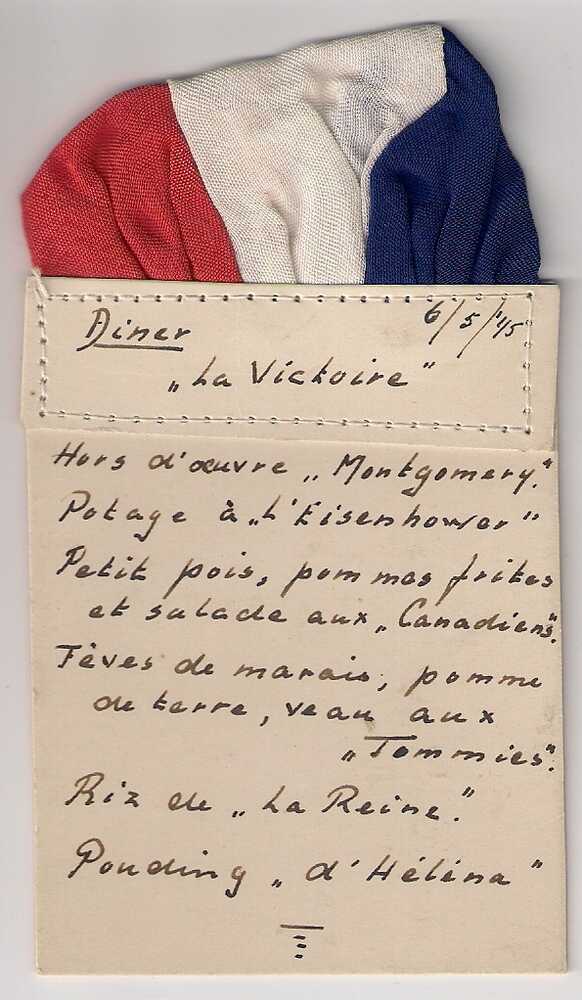 Diner 6/5/'45
„La Victoire"
Hors d'œuvre „Montgomery."
Potage à „L'Eisenhower"
Petit pois, pommes frites
et salade aux „Canadiens".
Fèves de marais, pomme
de terre, veau aux
„Tommies".
Riz de „La Reine."
Pouding „d'Héléna"